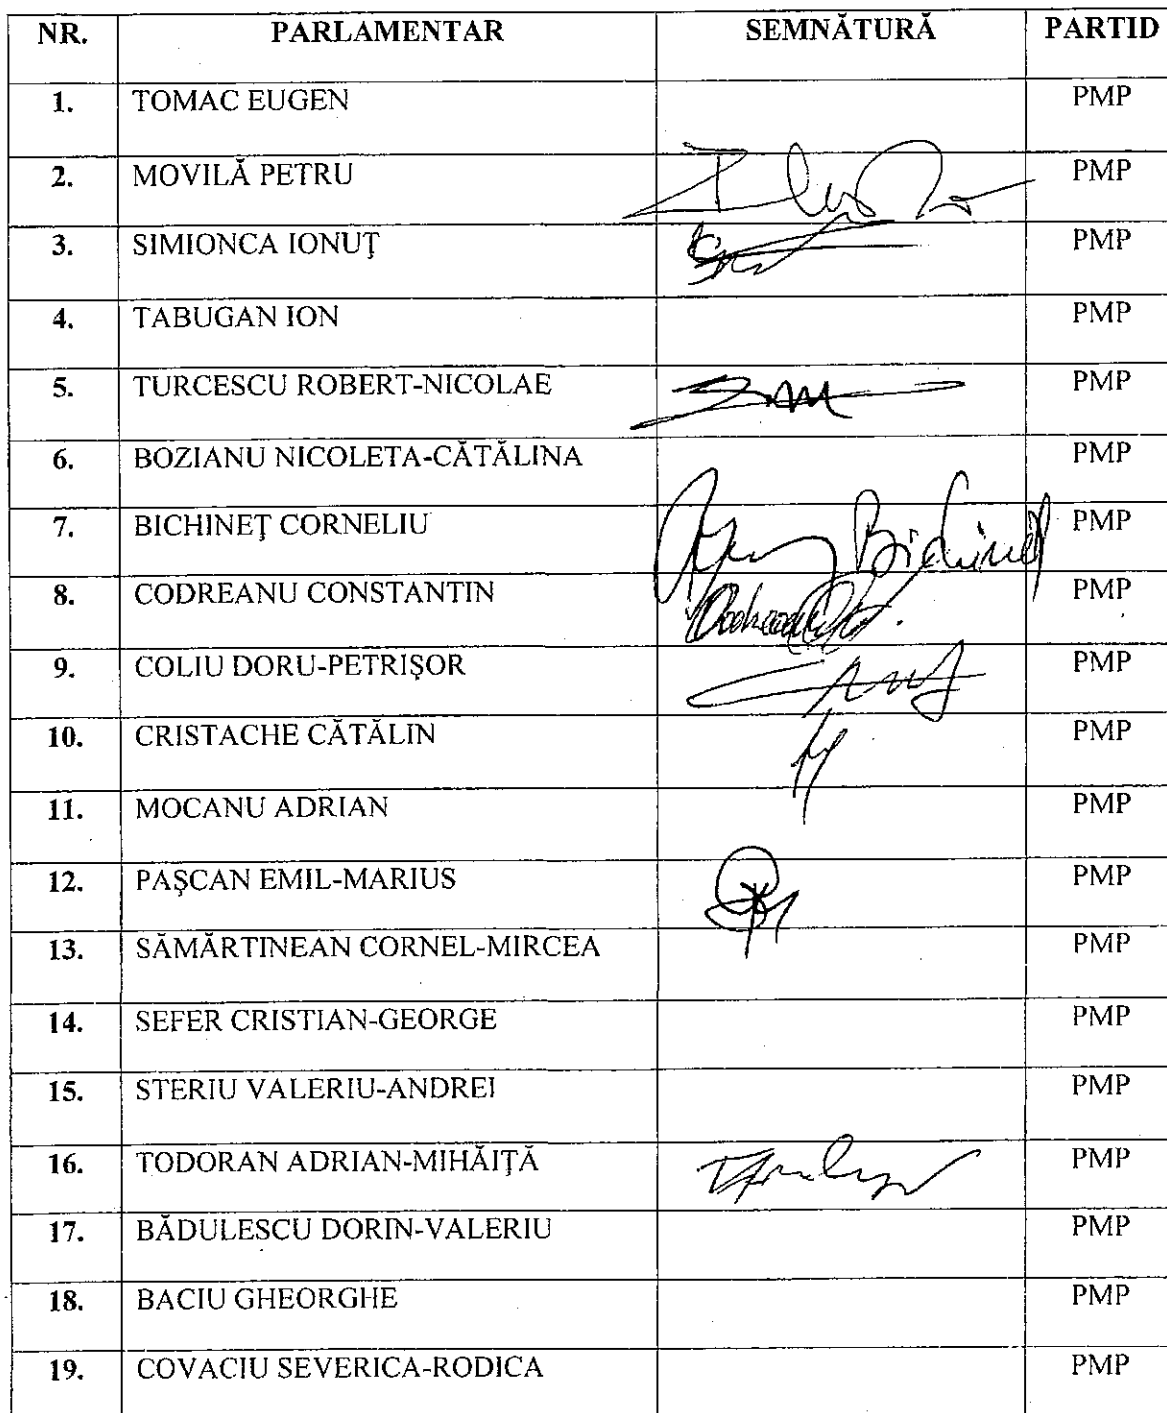 NR. PARLAMENTAR SEMNĂTURĂ PARTID
1. TOMAC EUGEN PMP
2. MOVILĂ PETRU PMP
3. SIMIONCA IONUŢ PMP
4. TABUGAN ION PMP
5. TURCESCU ROBERT-NICOLAE PMP
6. BOZIANU NICOLETA-CĂTĂLINA PMP
7. BICHINEŢ CORNELIU Bichineț PMP
8. CODREANU CONSTANTIN PMP
9. COLIU DORU-PETRIŞOR PMP
10. CRISTACHE CĂTĂLIN PMP
11. MOCANU ADRIAN PMP
12. PAŞCAN EMIL-MARIUS PMP
13. SĂMĂRTINEAN CORNEL-MIRCEA PMP
14. SEFER CRISTIAN-GEORGE PMP
15. STERIU VALERIU-ANDREI PMP
16. TODORAN ADRIAN-MIHĂIŢĂ PMP
17. BĂDULESCU DORIN-VALERIU PMP
18. BACIU GHEORGHE PMP
19. COVACIU SEVERICA-RODICA PMP